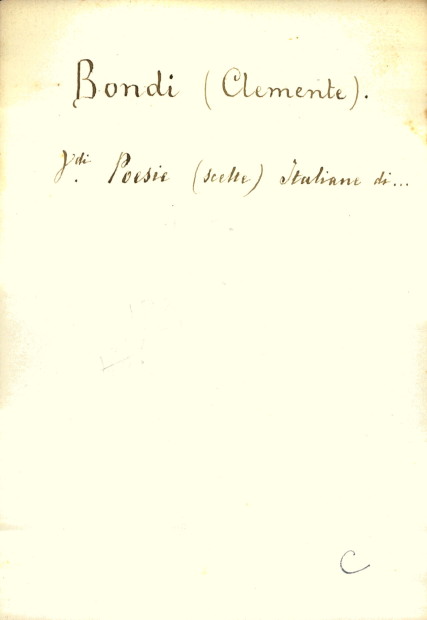 Bondi (Clemente).
V.di Poesie (scelte) Italiane di...
C